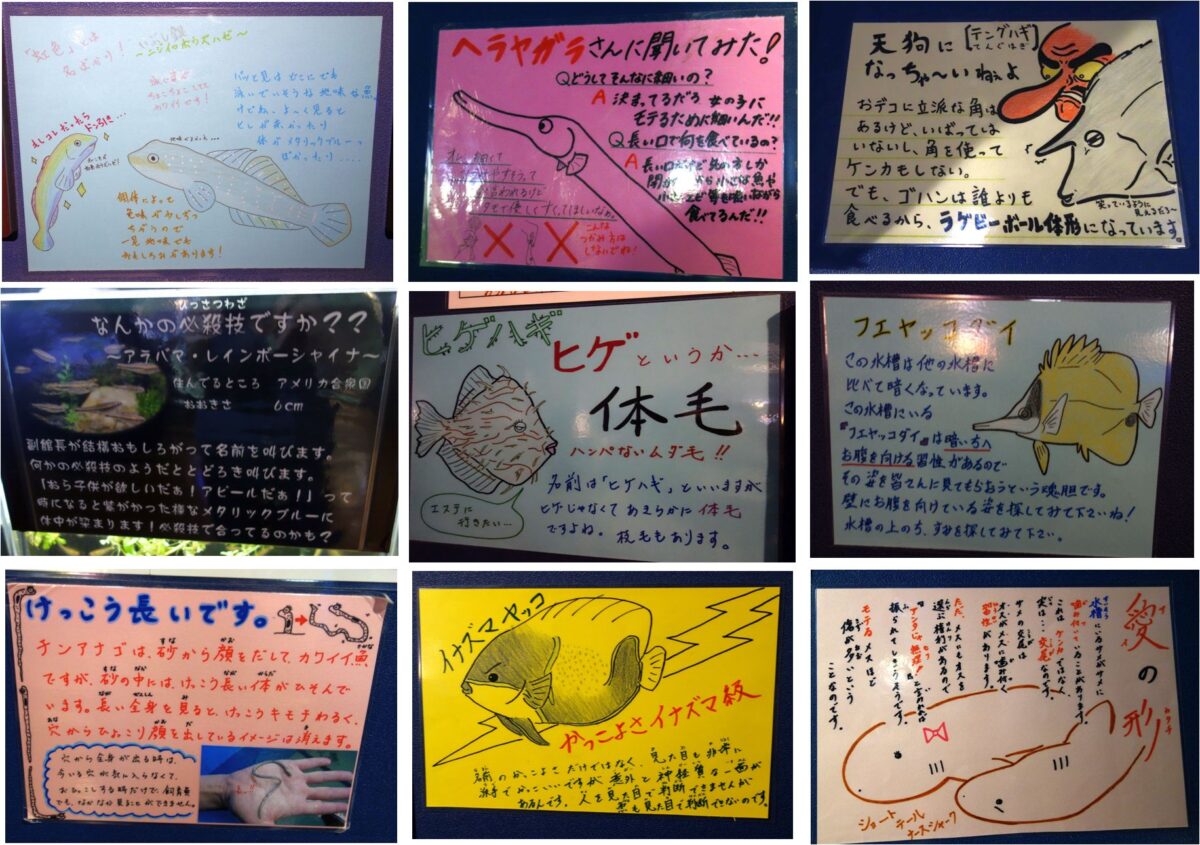 「虹色」とは
名ばかり！
～ニジイロボウズハゼ～
パッと見はどこにでも
泳いでいそうな地味な魚。
けでね、よ～く見ると
とし が 赤かったり
体がメタリックブルーっ
ぽかったり....
オレコレだったら
ドン引き...
地味でわるいか...
個体によって
色味が少しずつ
ちがうので
一見地味でも
おもしろみがあります！
ヘラヤガラさんに聞いてみた！
Qどうしてそんなに細いの？
A 決まってるだろ 女の子に
モテるために細いんだ!!
Q長い口で何を食べているの？
A 長い口だけど先の方しか
開かないから小さな魚や
小さなエビ等を吸いながら
食べてるんだ!!
オレ、細くて
こんな
つかみ方は
しないでね！
天狗に［テングハギ］
てんぐはぎ
なっちゃ～いねぇよ
おデコに立派な角は
あるけど、いばっては
いないし、角を使って
ケンカもしない。
でも、ゴハンは誰よりも
食べるから、ラグビーボール体形になっています。
笑っているように
見えるだろ～
ひっさつわざ
なんかの必殺技ですか？？
～アラバマ・レインボーシャイナ～
住んでるところ アメリカ合衆国
おおきさ 6cm
副館長が結構おもしろがって名前を叫びます。
何かの必殺技のようだととどろき叫びます。
「おら子供が欲しいだぁ！アピールだぁ！」って
時になると紫がかった様なメタリックブルーに
体中が染まります！必殺技で合ってるのかも？
ヒゲハギ
ヒゲというか...
体毛
ハンパないムダ毛!!
名前は「ヒゲハギ」といいますが
ヒゲじゃなくてあきらかに体毛
ですよね。枝毛もあります。
エステに
行きたい...
フエヤッコダイ
この水槽は他の水槽に
比べて暗くなっています。
この水槽にいる
『フエヤッコダイ』は暗い方へ
お腹を向ける習性があるので
その姿を皆さんに見てもらおうという魂胆です。
壁にお腹を向けている姿を探してみて下さいね！
水槽の上のち、すみを探してみて下さい。
けっこう長いです。
チンアナゴは、砂から顔をだして、カワイイ魚
ですが、砂の中には、けっこう長い体がひそんで
います。長い全身を見ると、けっこうキモチわるく、
穴からひょっこり顔を出しているイメージは消えます。
穴から全身が出る時は、
今いる穴が気に入らなくて、
お引っこしする時だけで、飼育員
でも、なかなか見ることができません。
イナズマヤッコ
かっこよさイナズマ級
名前のかっこよさだけではなく、見た目も非常に
派手でかっこいいですが意外と神経質な一面が
あるんです。人を見た目で判断できませんが
魚も見た目で判断できないのです。
愛の形
アイ
カタチ
水槽にいるサメがサメに
噛み付いていることがあります。
これはケンカではなく
実は…交尾なのです。
サメの交尾は、
オスがメスに噛み付く
習性があります。
ただ、メスにもオスを
選ぶ権利があるので
「アンタじゃ無理！」と言われれば
振られてしまうそうです。
モテるメスほど
傷が多いという
ことなのです。
ショート
テール
ナースシャーク